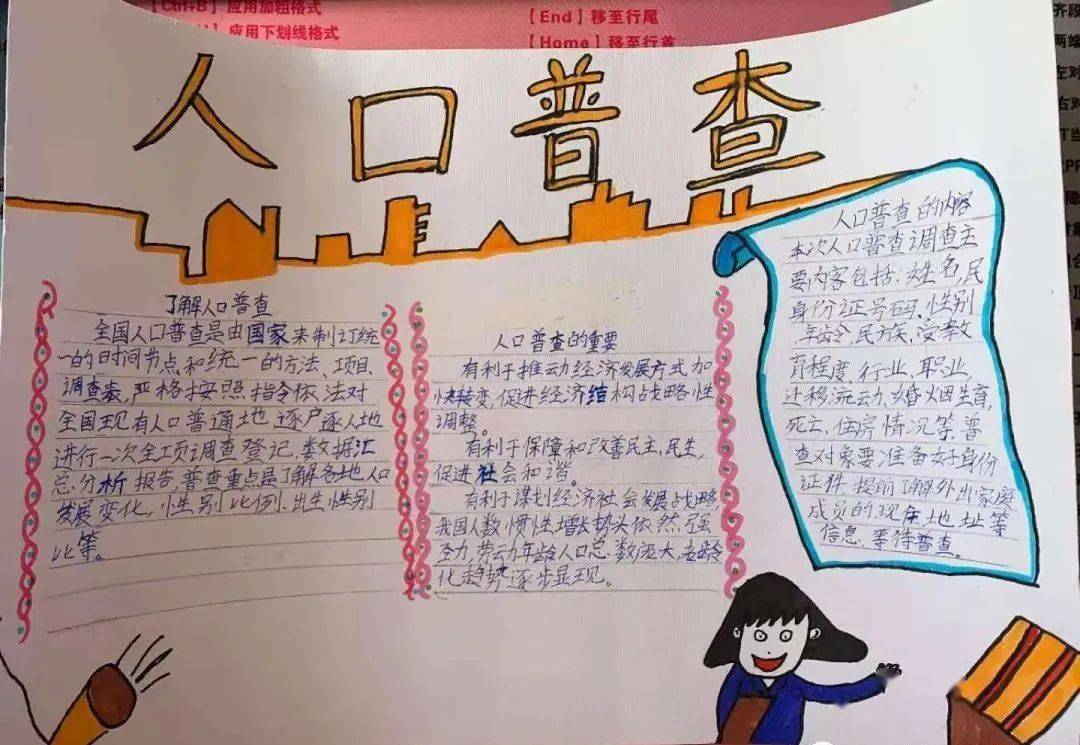 【Ctrl+B】应用加粗格式
应用下划线格式
【End】移至行尾
【Home】移至行首
人口普查
了解人口普查
全国人口普查是由国家来制订统
一的时间节点和统一的方法、项目、
调查表,严格按照指令依法对
全国现有人口普通地、逐户逐人地
进行一次全项调查登记,数据汇
总、分析报告,普查重点是了解各地人口
发展变化,性别比例、出生性别
比等。
人口普查的重要
有利于推动经济发展方式加
快转变,促进经济结构战略性
调整。
有利于保障和改善民主,民生,
促进社会和谐。
有利于谋划经济社会发展战略,
我国人数惯性增长势头依然强
劲,劳动年龄人口总数庞大,老龄
化趋势逐步显现。
人口普查的内容
本次人口普查调查主
要内容包括:姓名,民
身份证号码、性别
年龄,民族,受教
育程度、行业、职业、
迁移流动,婚姻生育,
死亡、住房情况等,普
查对象要准备好身份
证件,提前了解外出家庭
成员的现住地址等
信息,等待普查。